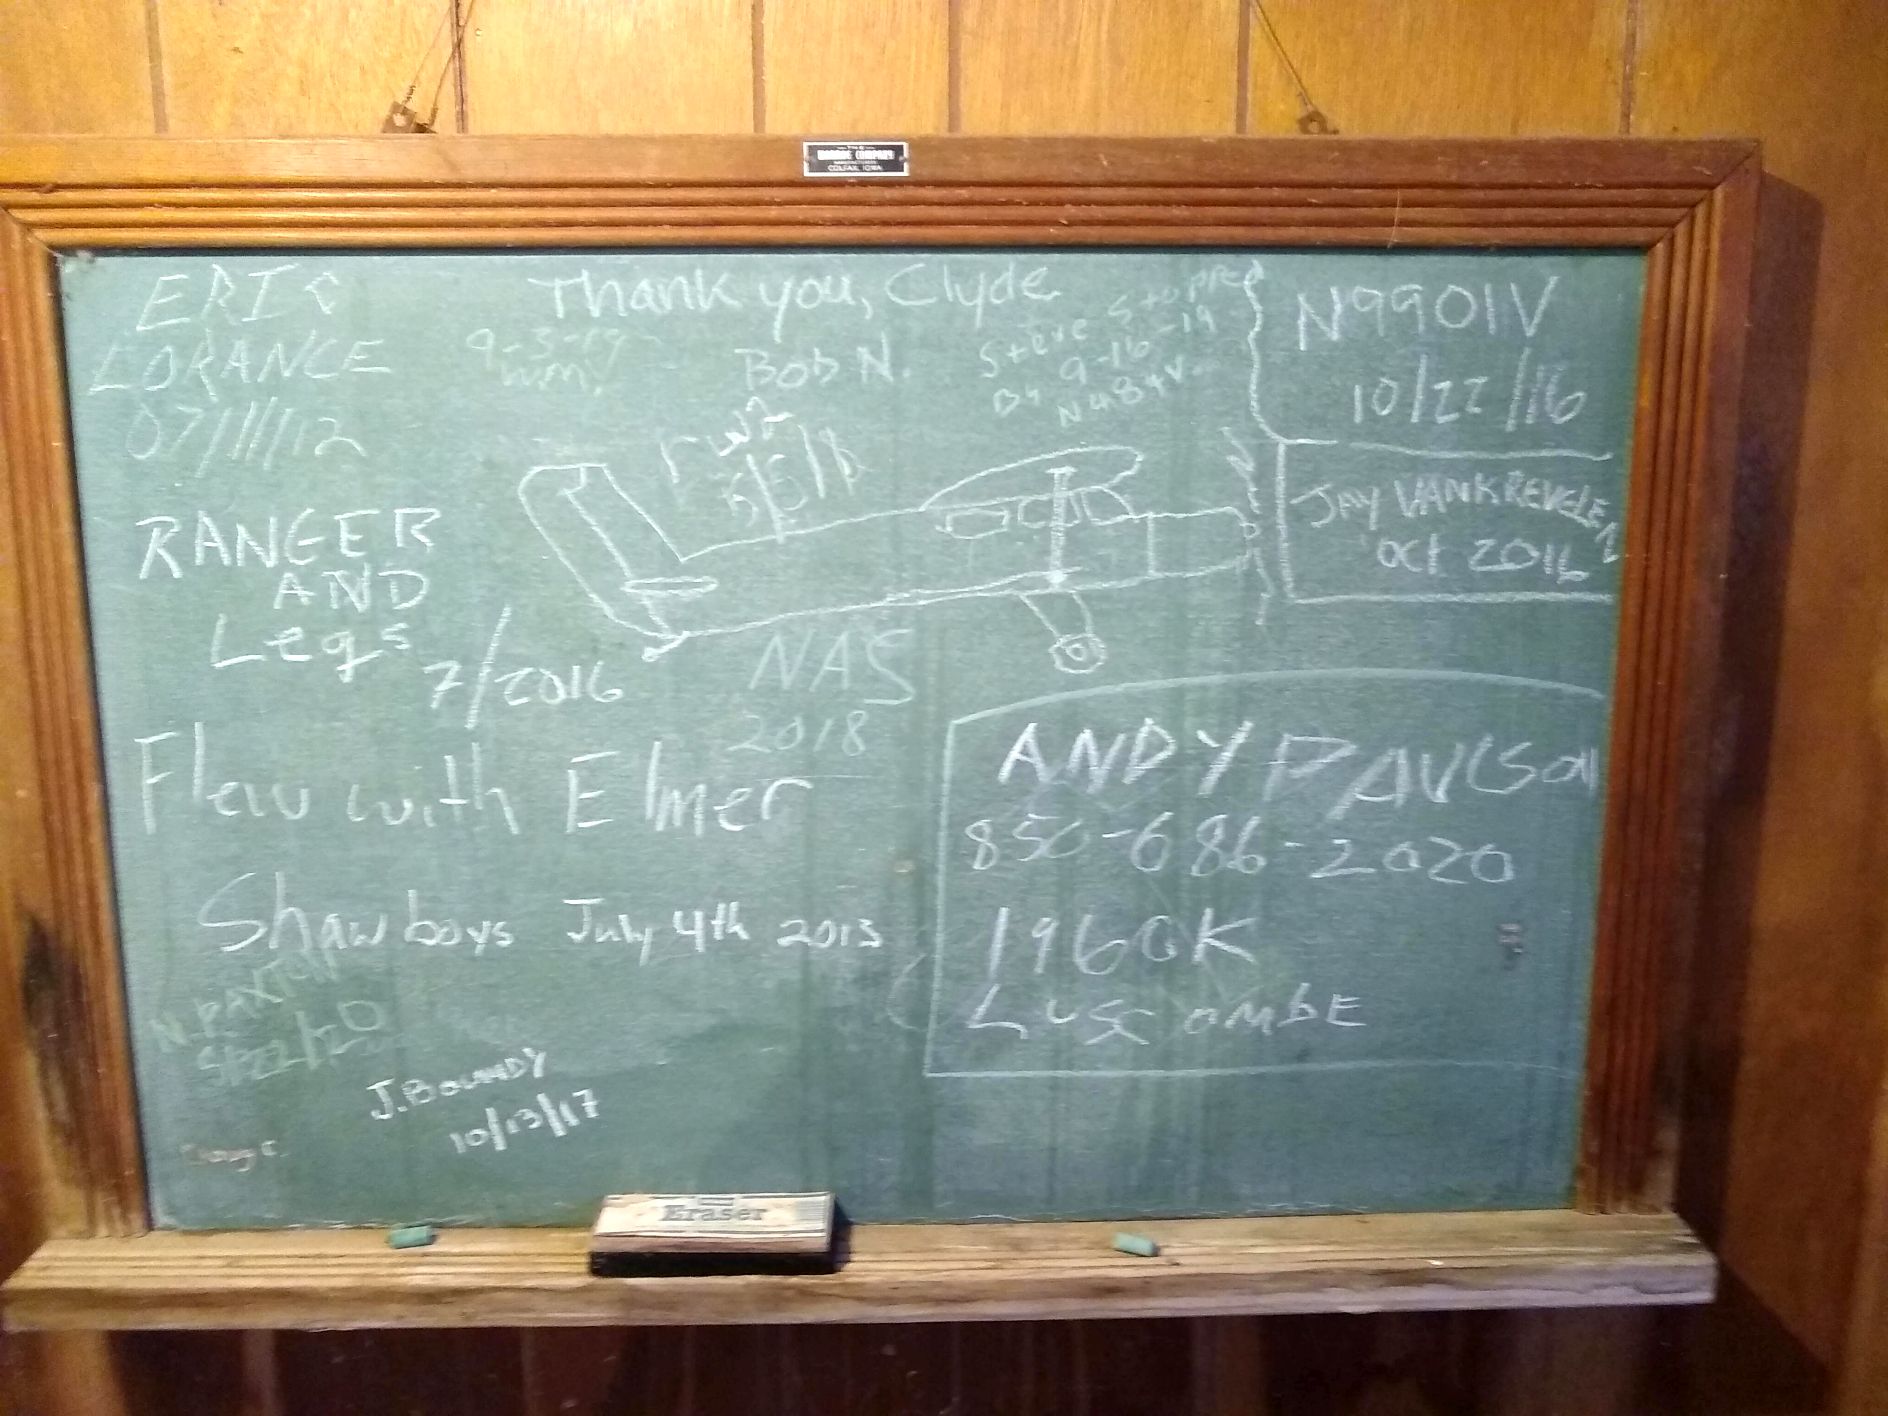 THE
COMPANY
COLFAX, IOWA
ERIC
LORANCE
07/11/12
Thank you, Clyde
Bob N.
9-3-19
WM.
Steve Stopped
By 9-16-19
N9901V
10/22/16
JAY VANKREVELEN
Oct 2016
RANGER
AND
Legs
7/2016
NAS
2018
Flew with Elmer
Shaw boys July 4th 2013
N. PAXTON
J. BOUNDY
10/13/17
ANDY DAVISON
850-686-2020
1960K
LUSCOMBE
Eraser